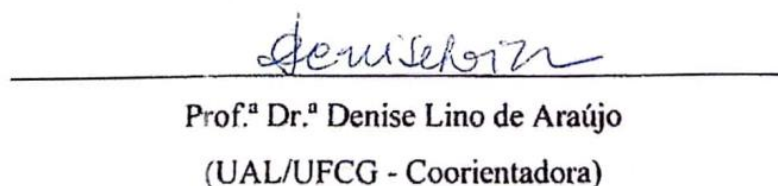 Prof.ª Dr.ª Denise Lino de Araújo
(UAL/UFCG - Coorientadora)